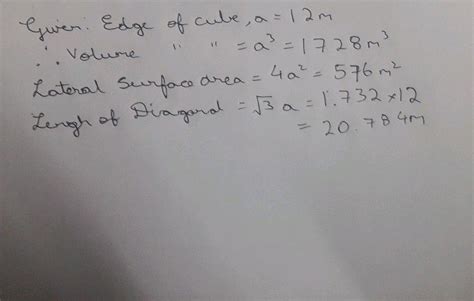 Given: Edge of cube, a = 12m
∴ Volume " " = a³ = 1728m³
Lateral Surface area = 4a² = 576m²
Lengh of Diagonal = √3 a = 1.732×12
= 20.784m